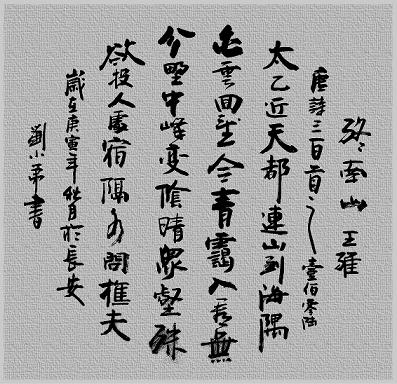 終南山 王維
唐詩三百首之一 壹佰零陸
太乙近天都連山到海隅
白雲回望合青靄入看無
分野中峰變陰晴眾壑殊
欲投人處宿隔水問樵夫
歲在庚寅年秋月於長安
劉小書